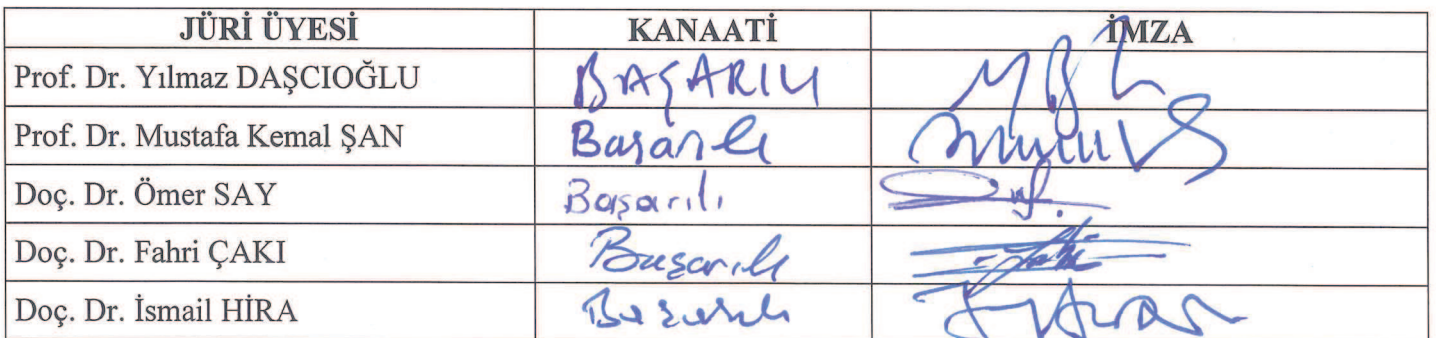 JÜRİ ÜYESİ KANAATİ İMZA
Prof. Dr. Yılmaz DAŞCIOĞLU BAŞARILI
Prof. Dr. Mustafa Kemal ŞAN Başarılı
Doç. Dr. Ömer SAY Başarılı
Doç. Dr. Fahri ÇAKI Başarılı
Doç. Dr. İsmail HİRA Başarılı